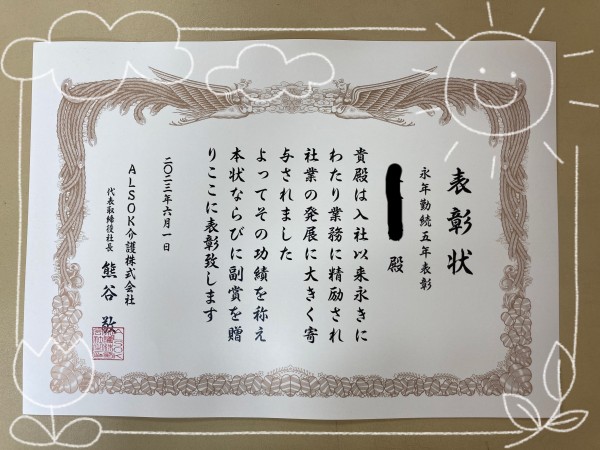 表彰状
永年勤続五年表彰
殿
貴殿は入社以来永きに
わたり業務に精励され
社業の発展に大きく寄
与されました
よってその功績を称え
本状ならびに副賞を贈
りここに表彰致します
二〇二三年六月一日
ALSOK介護株式会社
代表取締役社長 熊谷 敬